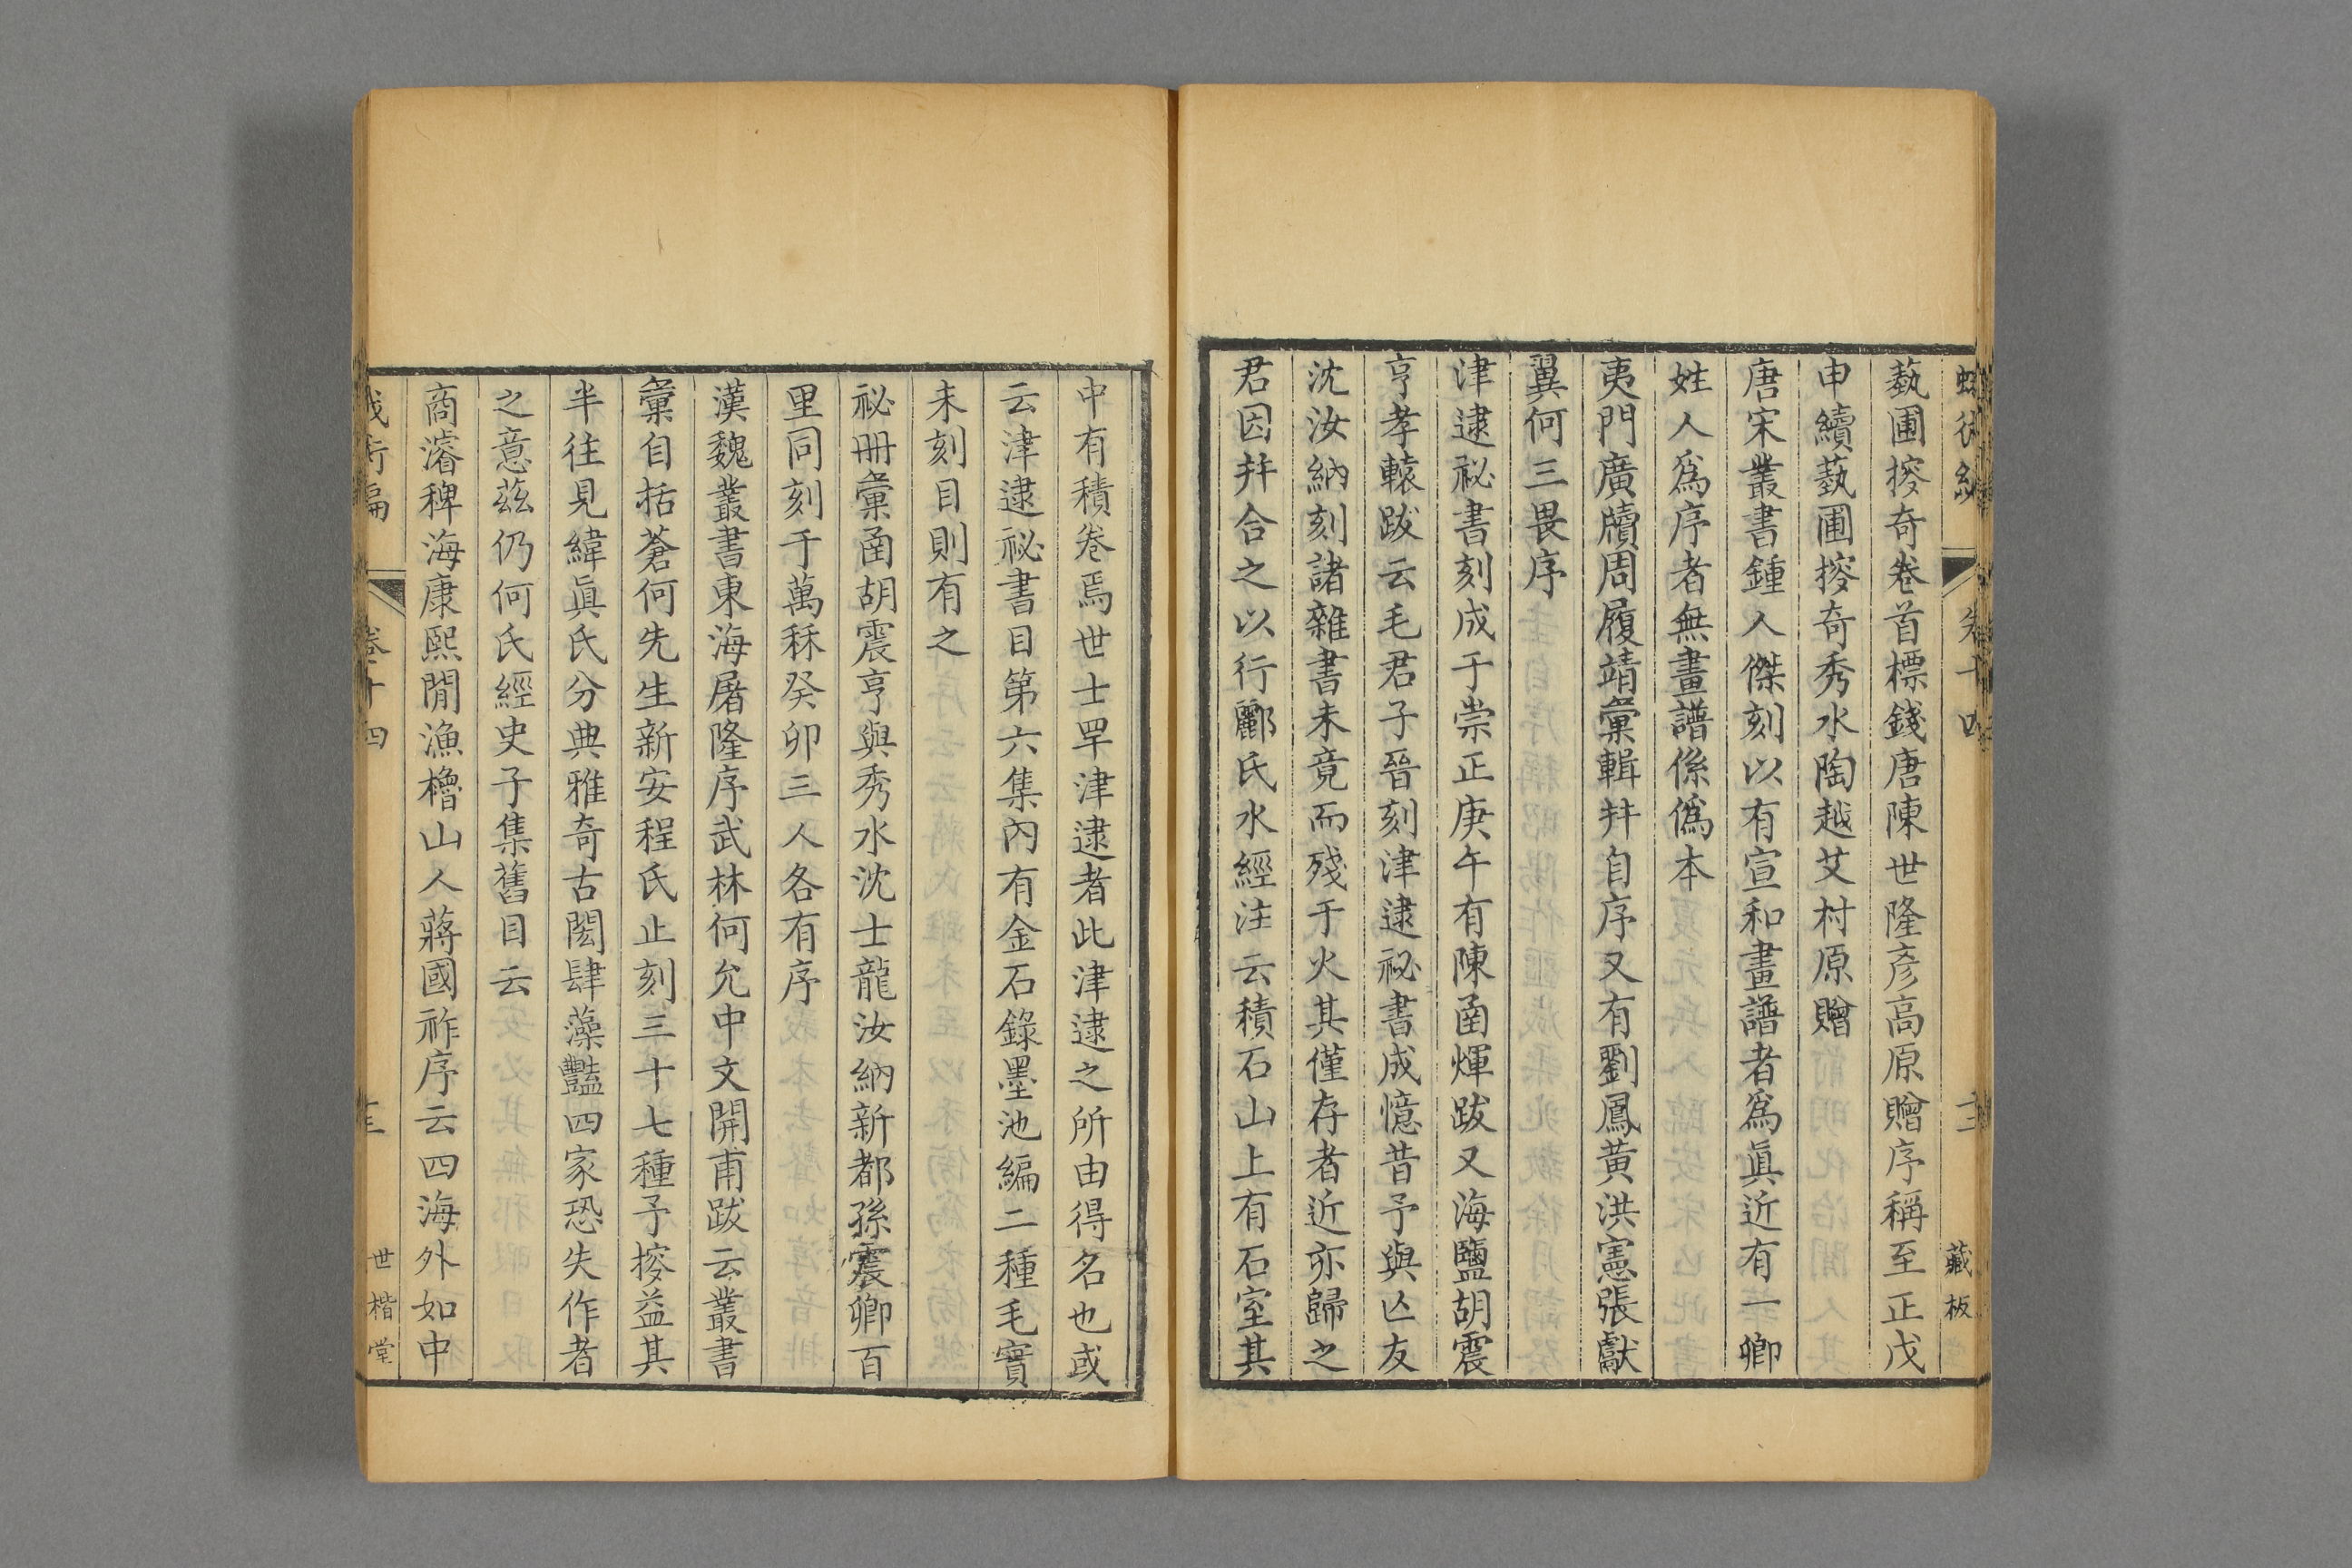 藝圃搜奇卷首標錢唐陳世隆彥高原贈序稱至正戊
申續藝圃搜奇秀水陶越艾村原贈
唐宋叢書鍾人傑刻以有宣和畫譜者爲眞近有一卿
姓人爲序者無畫譜係僞本
夷門廣牘周履靖彙輯幷自序又有劉鳳黃洪憲張獻
翼何三畏序
津逮祕書刻成于崇正庚午有陳函煇跋又海鹽胡震
亨孝轅跋云毛君子晉刻津逮祕書成憶昔予與亾友
沈汝納刻諸雜書未竟而殘于火其僅存者近亦歸之
君因幷合之以行酈氏水經注云積石山上有石室其
中有積卷焉世士罕津逮者此津逮之所由得名也或
云津逮祕書目第六集內有金石錄墨池編二種毛實
未刻目則有之
祕冊彙函胡震亨與秀水沈士龍汝納新都孫震卿百
里同刻于萬秝癸卯三人各有序
漢魏叢書東海屠隆序武林何允中文開甫跋云叢書
彙自括蒼何先生新安程氏止刻三十七種予搜益其
半往見緯眞氏分典雅奇古閎肆藻豔四家恐失作者
之意茲仍何氏經史子集舊目云
商濬稗海康熙閒漁櫓山人蔣國祚序云四海外如中
卷十四
世楷堂
藏板